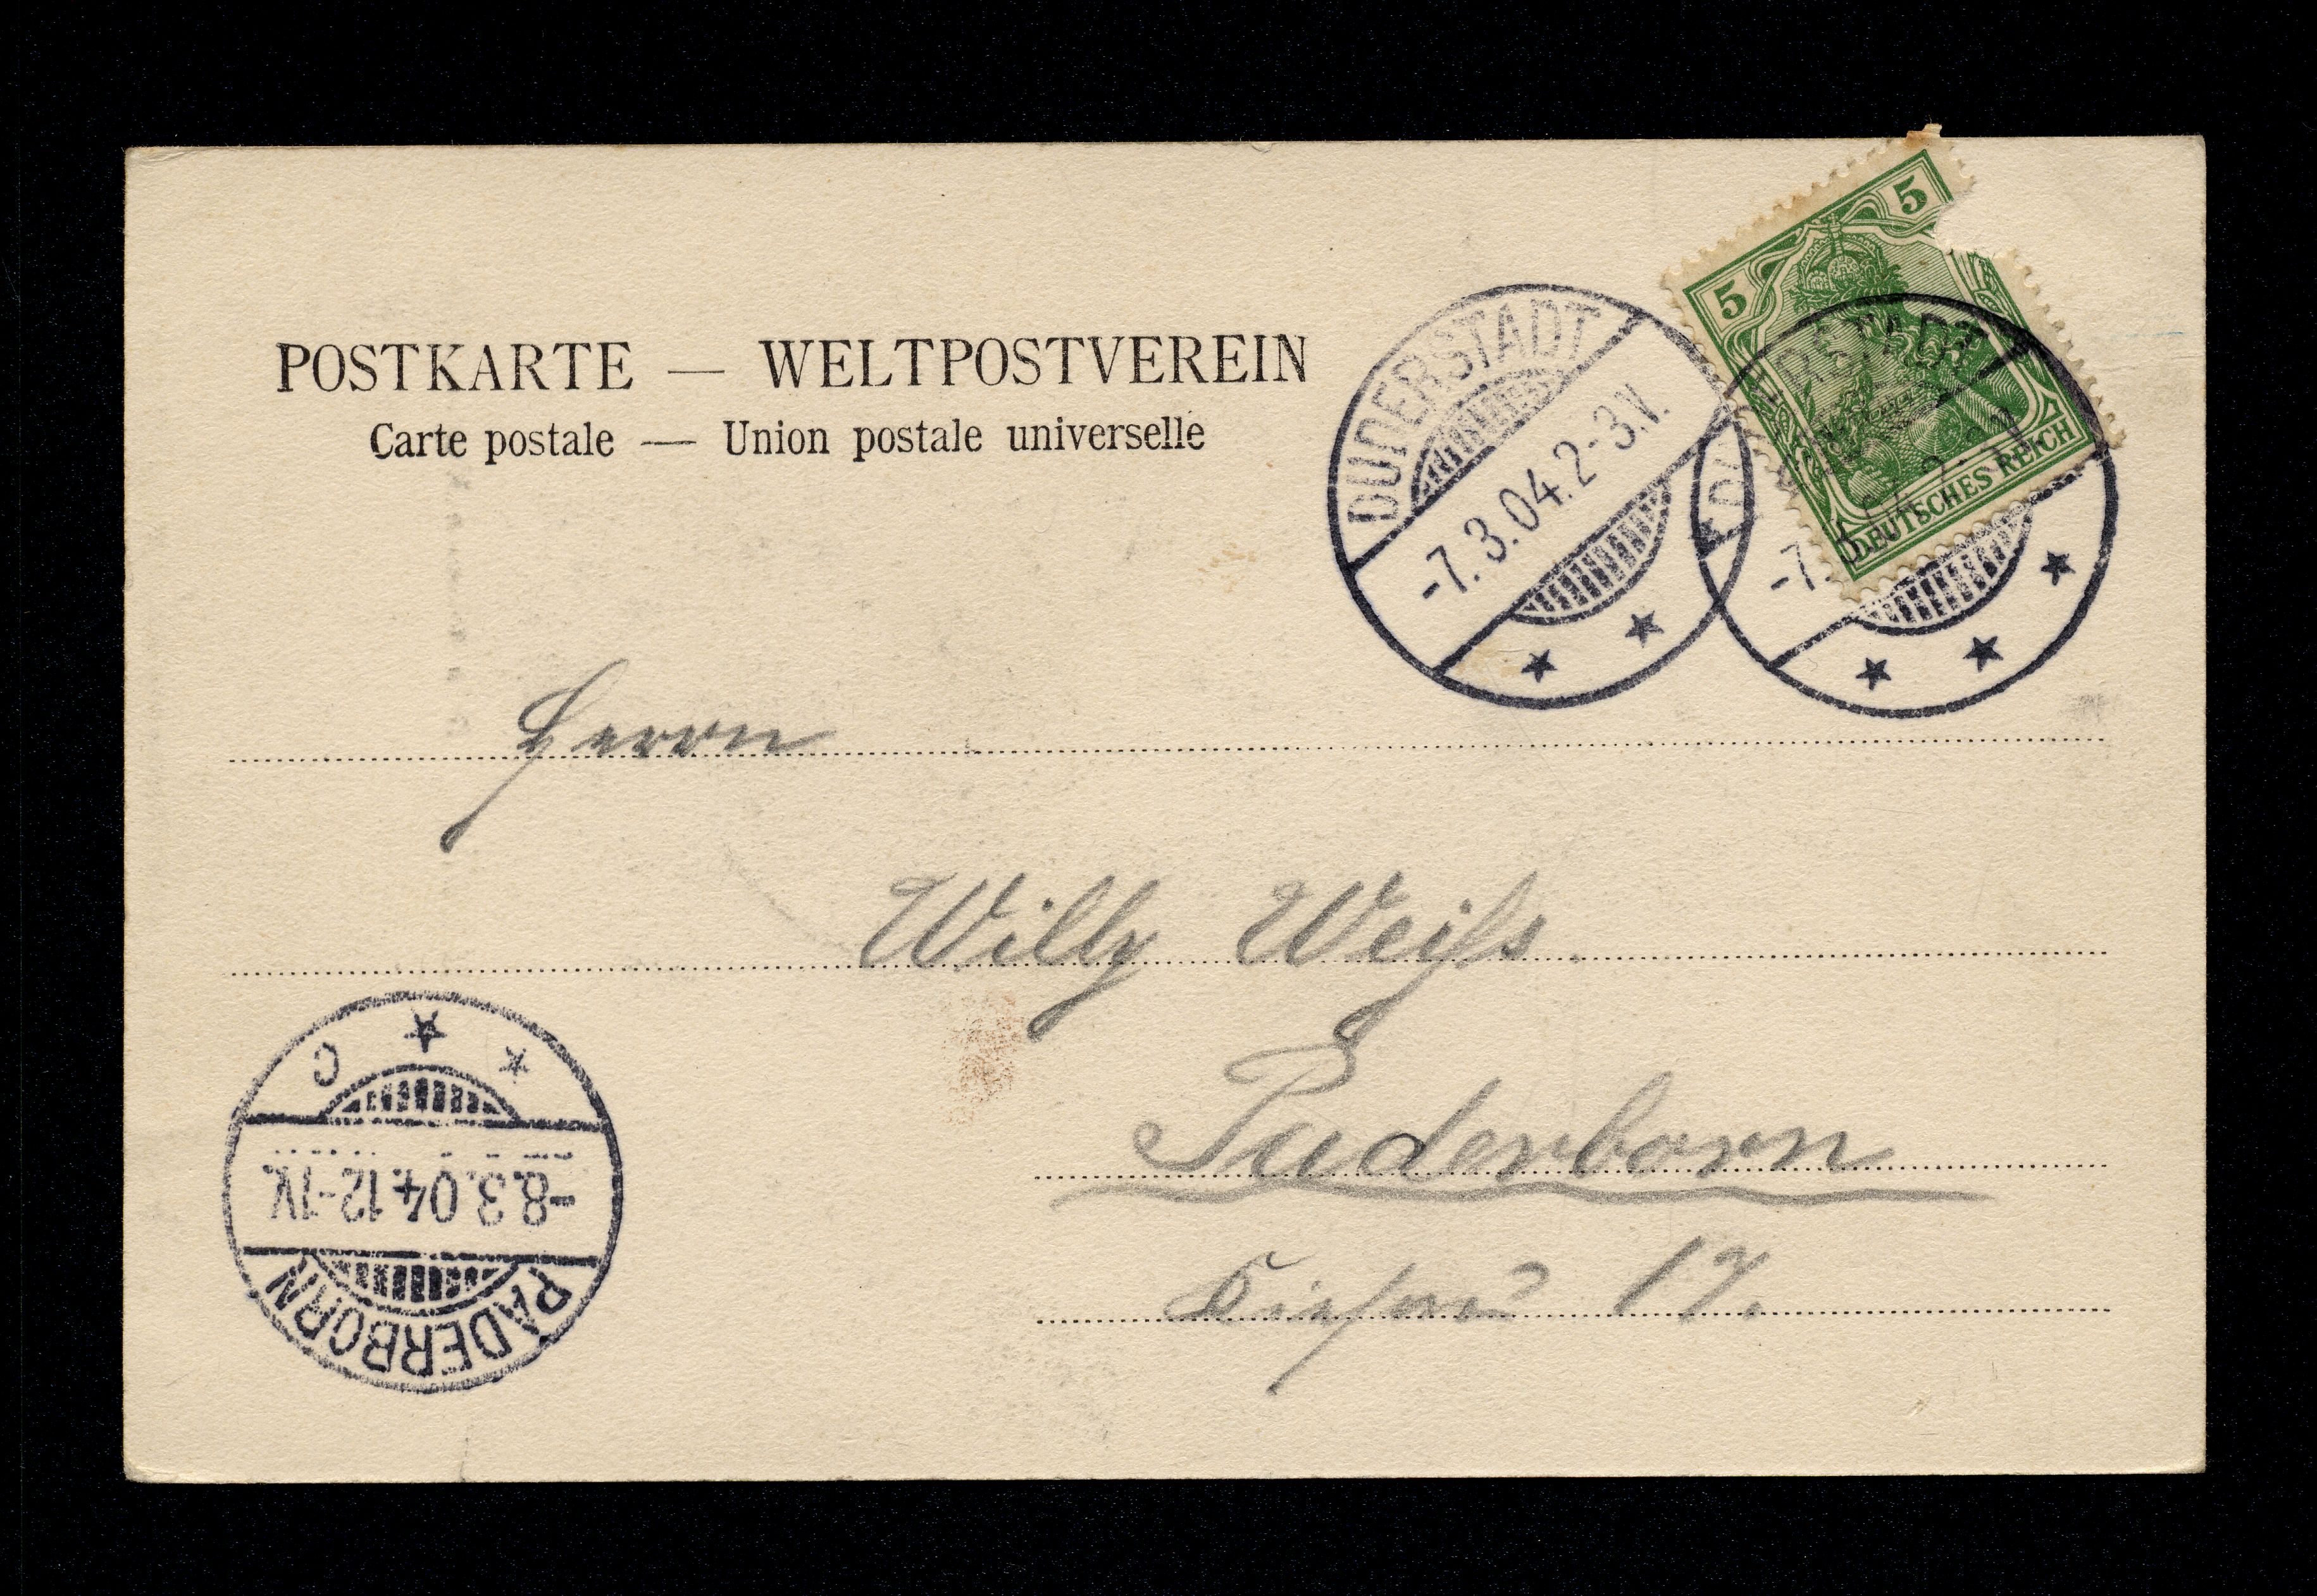 POSTKARTE — WELTPOSTVEREIN
Carte postale — Union postale universelle
5 5
DEUTSCHES REICH
DUDERSTADT
-7.3.04.2-3.V.
Herrn
Willy Weiſs.
Paderborn
17.
C
-8.3.04.12-1V.
PADERBORN